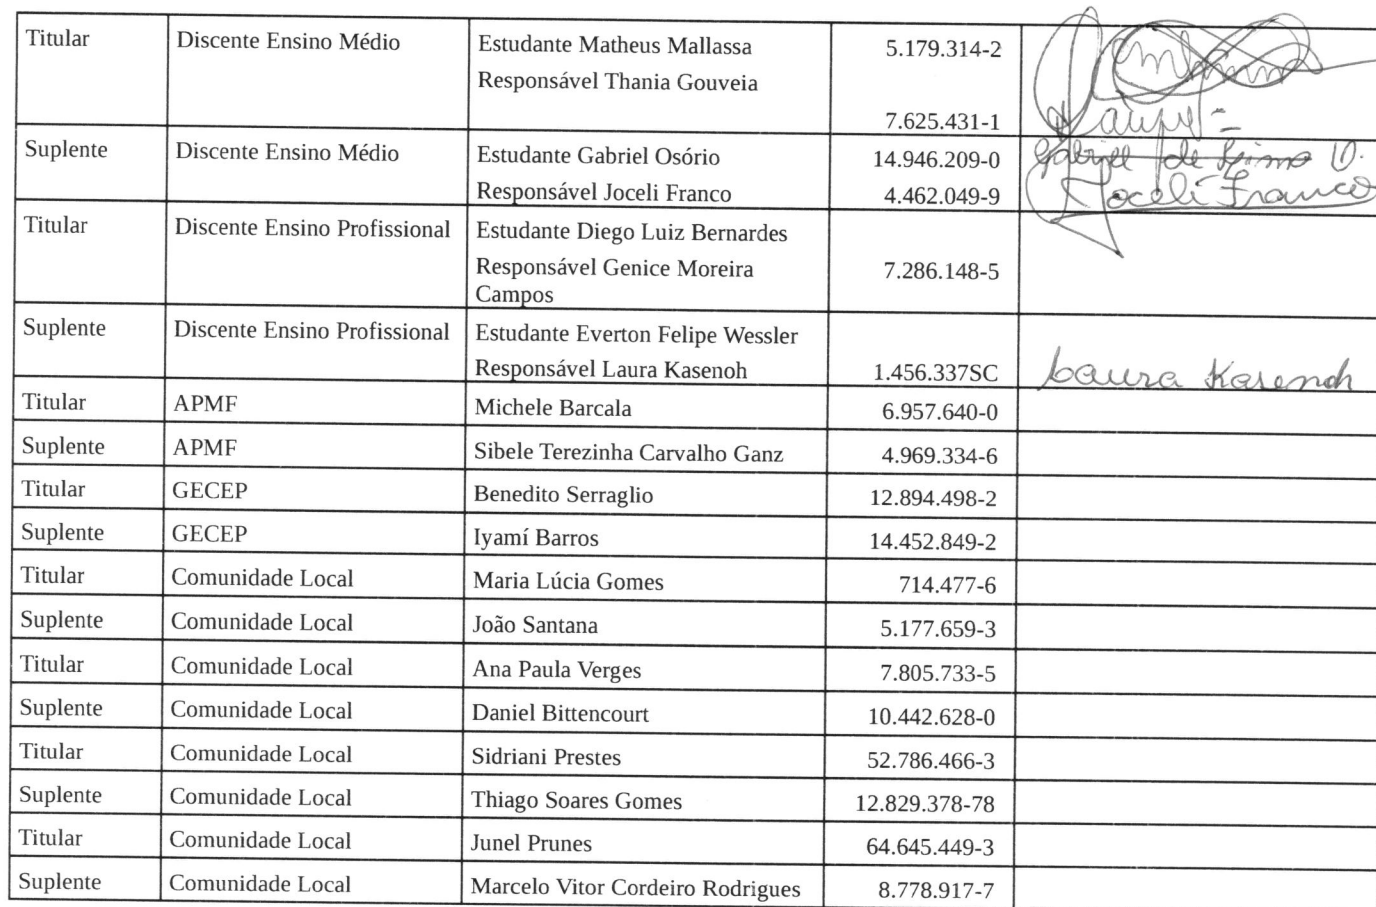 Titular Discente Ensino Médio Estudante Matheus Mallassa 5.179.314-2
Responsável Thania Gouveia
7.625.431-1
Suplente Discente Ensino Médio Estudante Gabriel Osório 14.946.209-0 Gabriel de Lima O.
Responsável Joceli Franco 4.462.049-9 Joceli Franco
Titular Discente Ensino Profissional Estudante Diego Luiz Bernardes
Responsável Genice Moreira 7.286.148-5
Campos
Suplente Discente Ensino Profissional Estudante Everton Felipe Wessler
Responsável Laura Kasenoh 1.456.337SC Laura Kasenoh
Titular APMF Michele Barcala 6.957.640-0
Suplente APMF Sibele Terezinha Carvalho Ganz 4.969.334-6
Titular GECEP Benedito Serraglio 12.894.498-2
Suplente GECEP Iyamí Barros 14.452.849-2
Titular Comunidade Local Maria Lúcia Gomes 714.477-6
Suplente Comunidade Local João Santana 5.177.659-3
Titular Comunidade Local Ana Paula Verges 7.805.733-5
Suplente Comunidade Local Daniel Bittencourt 10.442.628-0
Titular Comunidade Local Sidriani Prestes 52.786.466-3
Suplente Comunidade Local Thiago Soares Gomes 12.829.378-78
Titular Comunidade Local Junel Prunes 64.645.449-3
Suplente Comunidade Local Marcelo Vitor Cordeiro Rodrigues 8.778.917-7